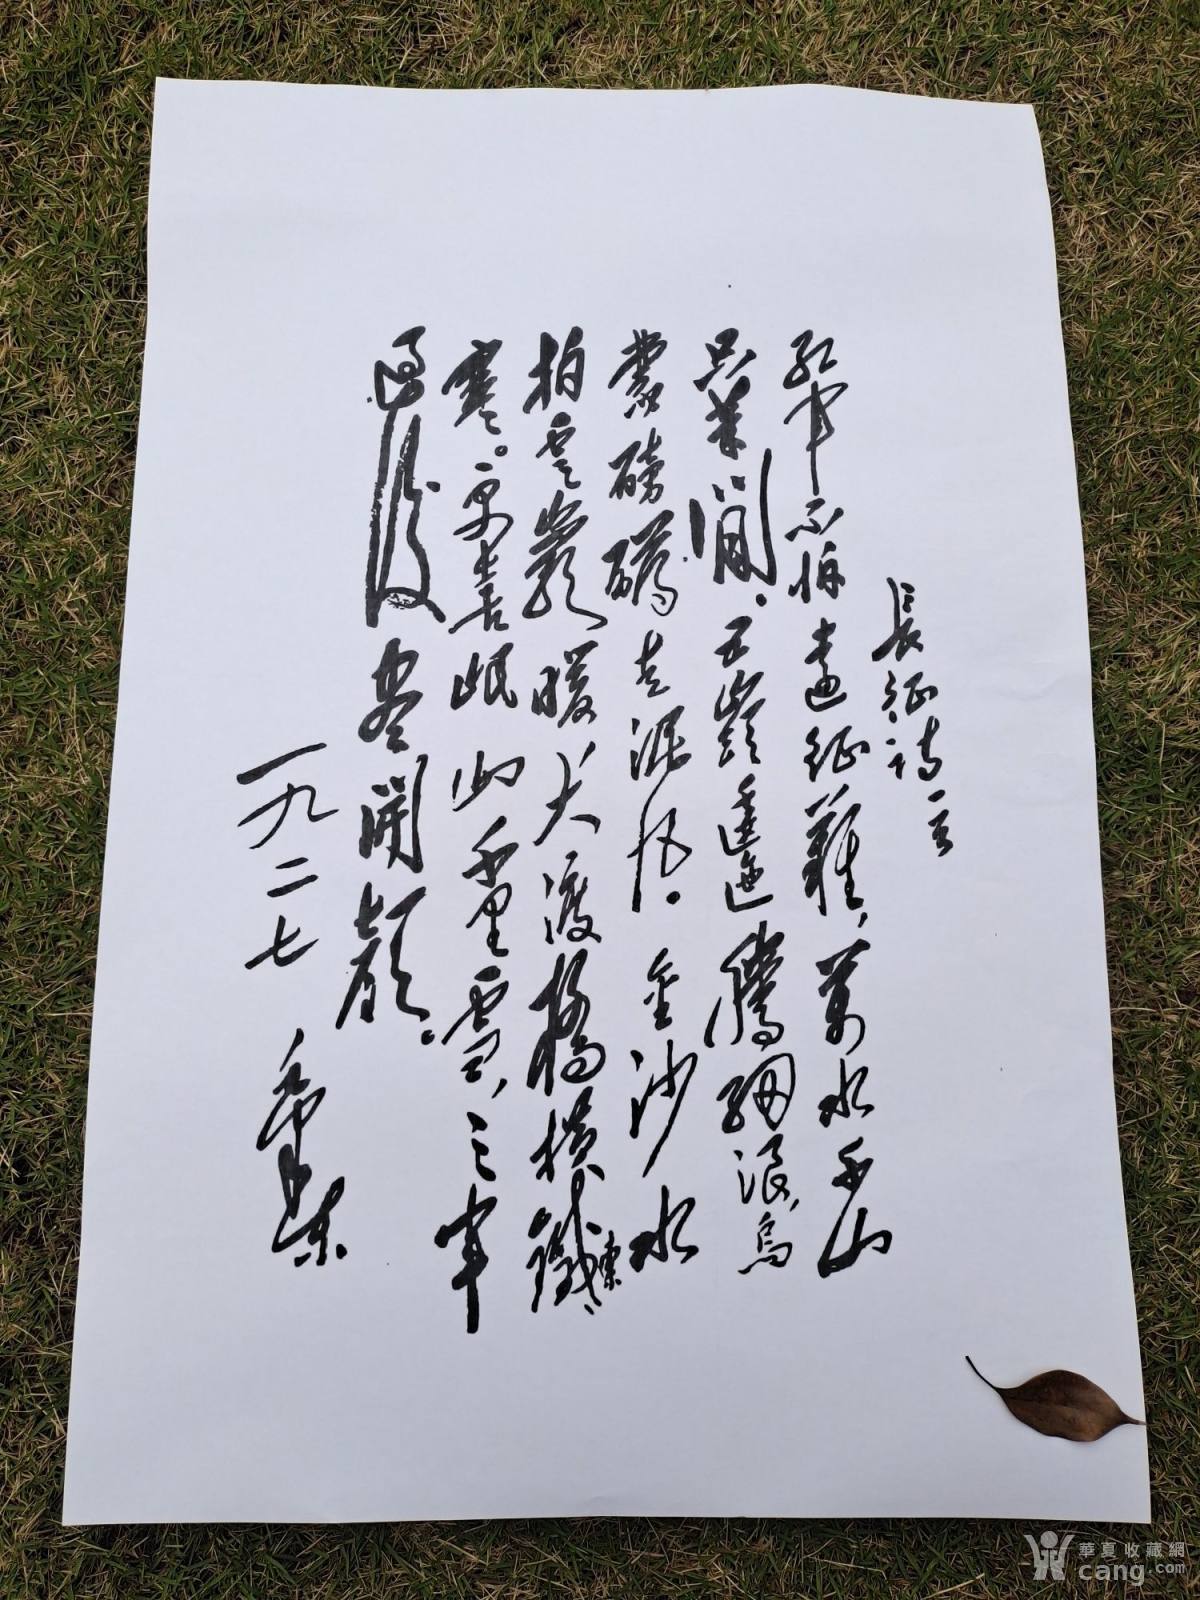 長征詩一首
紅軍不怕遠征難,萬水千山
只等閒。五嶺逶迤騰細浪,烏
蒙磅礴走泥丸。金沙水
拍雲巖暖大渡橋橫鐵索
寒。更喜岷山千里雪,三軍
過後盡開顏。
一九二七
毛澤東
華夏收藏網
cang.com